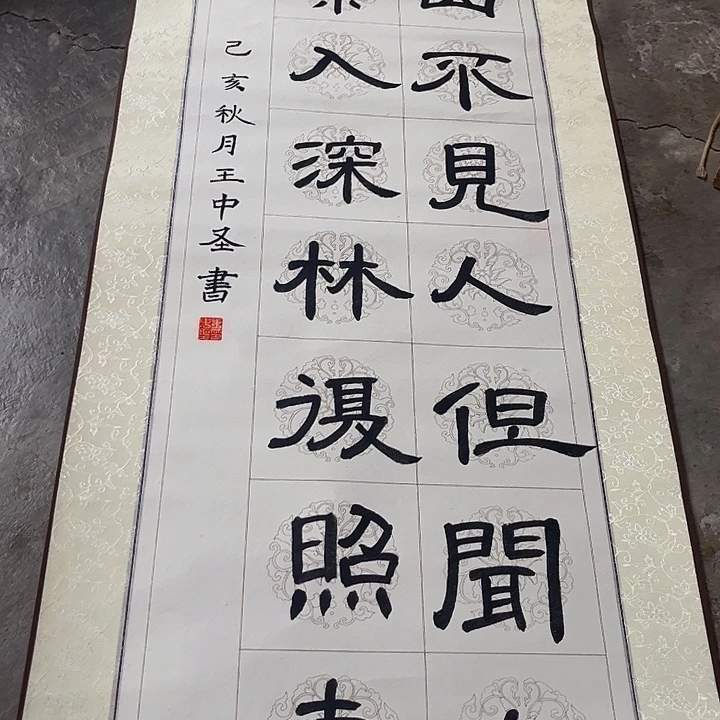 不見人但聞
入深林復照
己亥秋月王中圣書